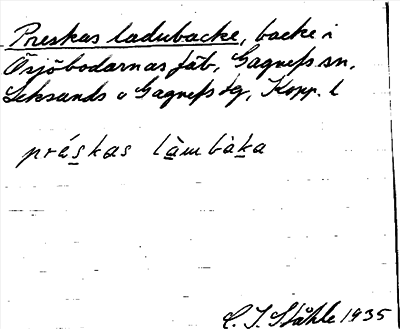 Preskas ladubacke, backe i
Örsjöbodarnas fäb, Gagnefs sn,
Leksands o Gagnefs tg, Kopp. l
préskas làmbàka
C. I. Ståhle 1935